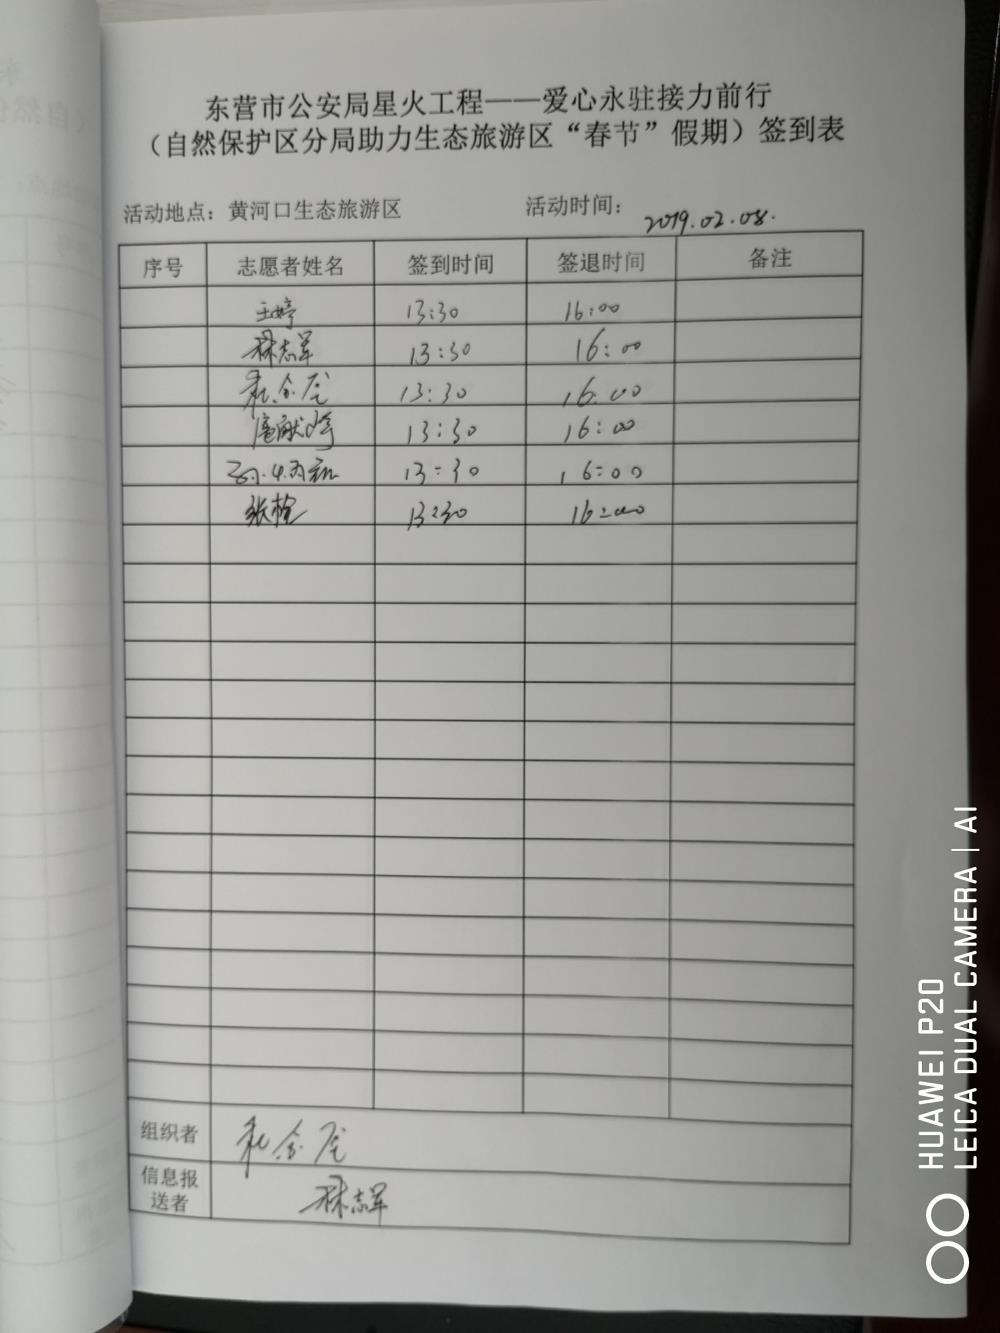 东营市公安局星火工程——爱心永驻接力前行
（自然保护区分局助力生态旅游区“春节”假期）签到表
活动地点：黄河口生态旅游区 活动时间： 2019.02.08.
序号 志愿者姓名 签到时间 签退时间 备注
王婷 13:30 16:00
林志军 13:30 16:00
13:30 16:00
13:30 16:00
13:30 16:00
张栓 13:30 16:00
组织者
信息报
送者 林志军
HUAWEI P20
LEICA DUAL CAMERA | AI